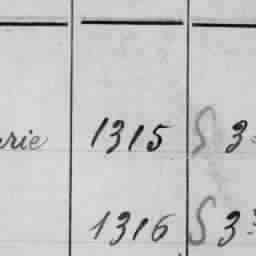 rie 1315 S 3
1316 S 3